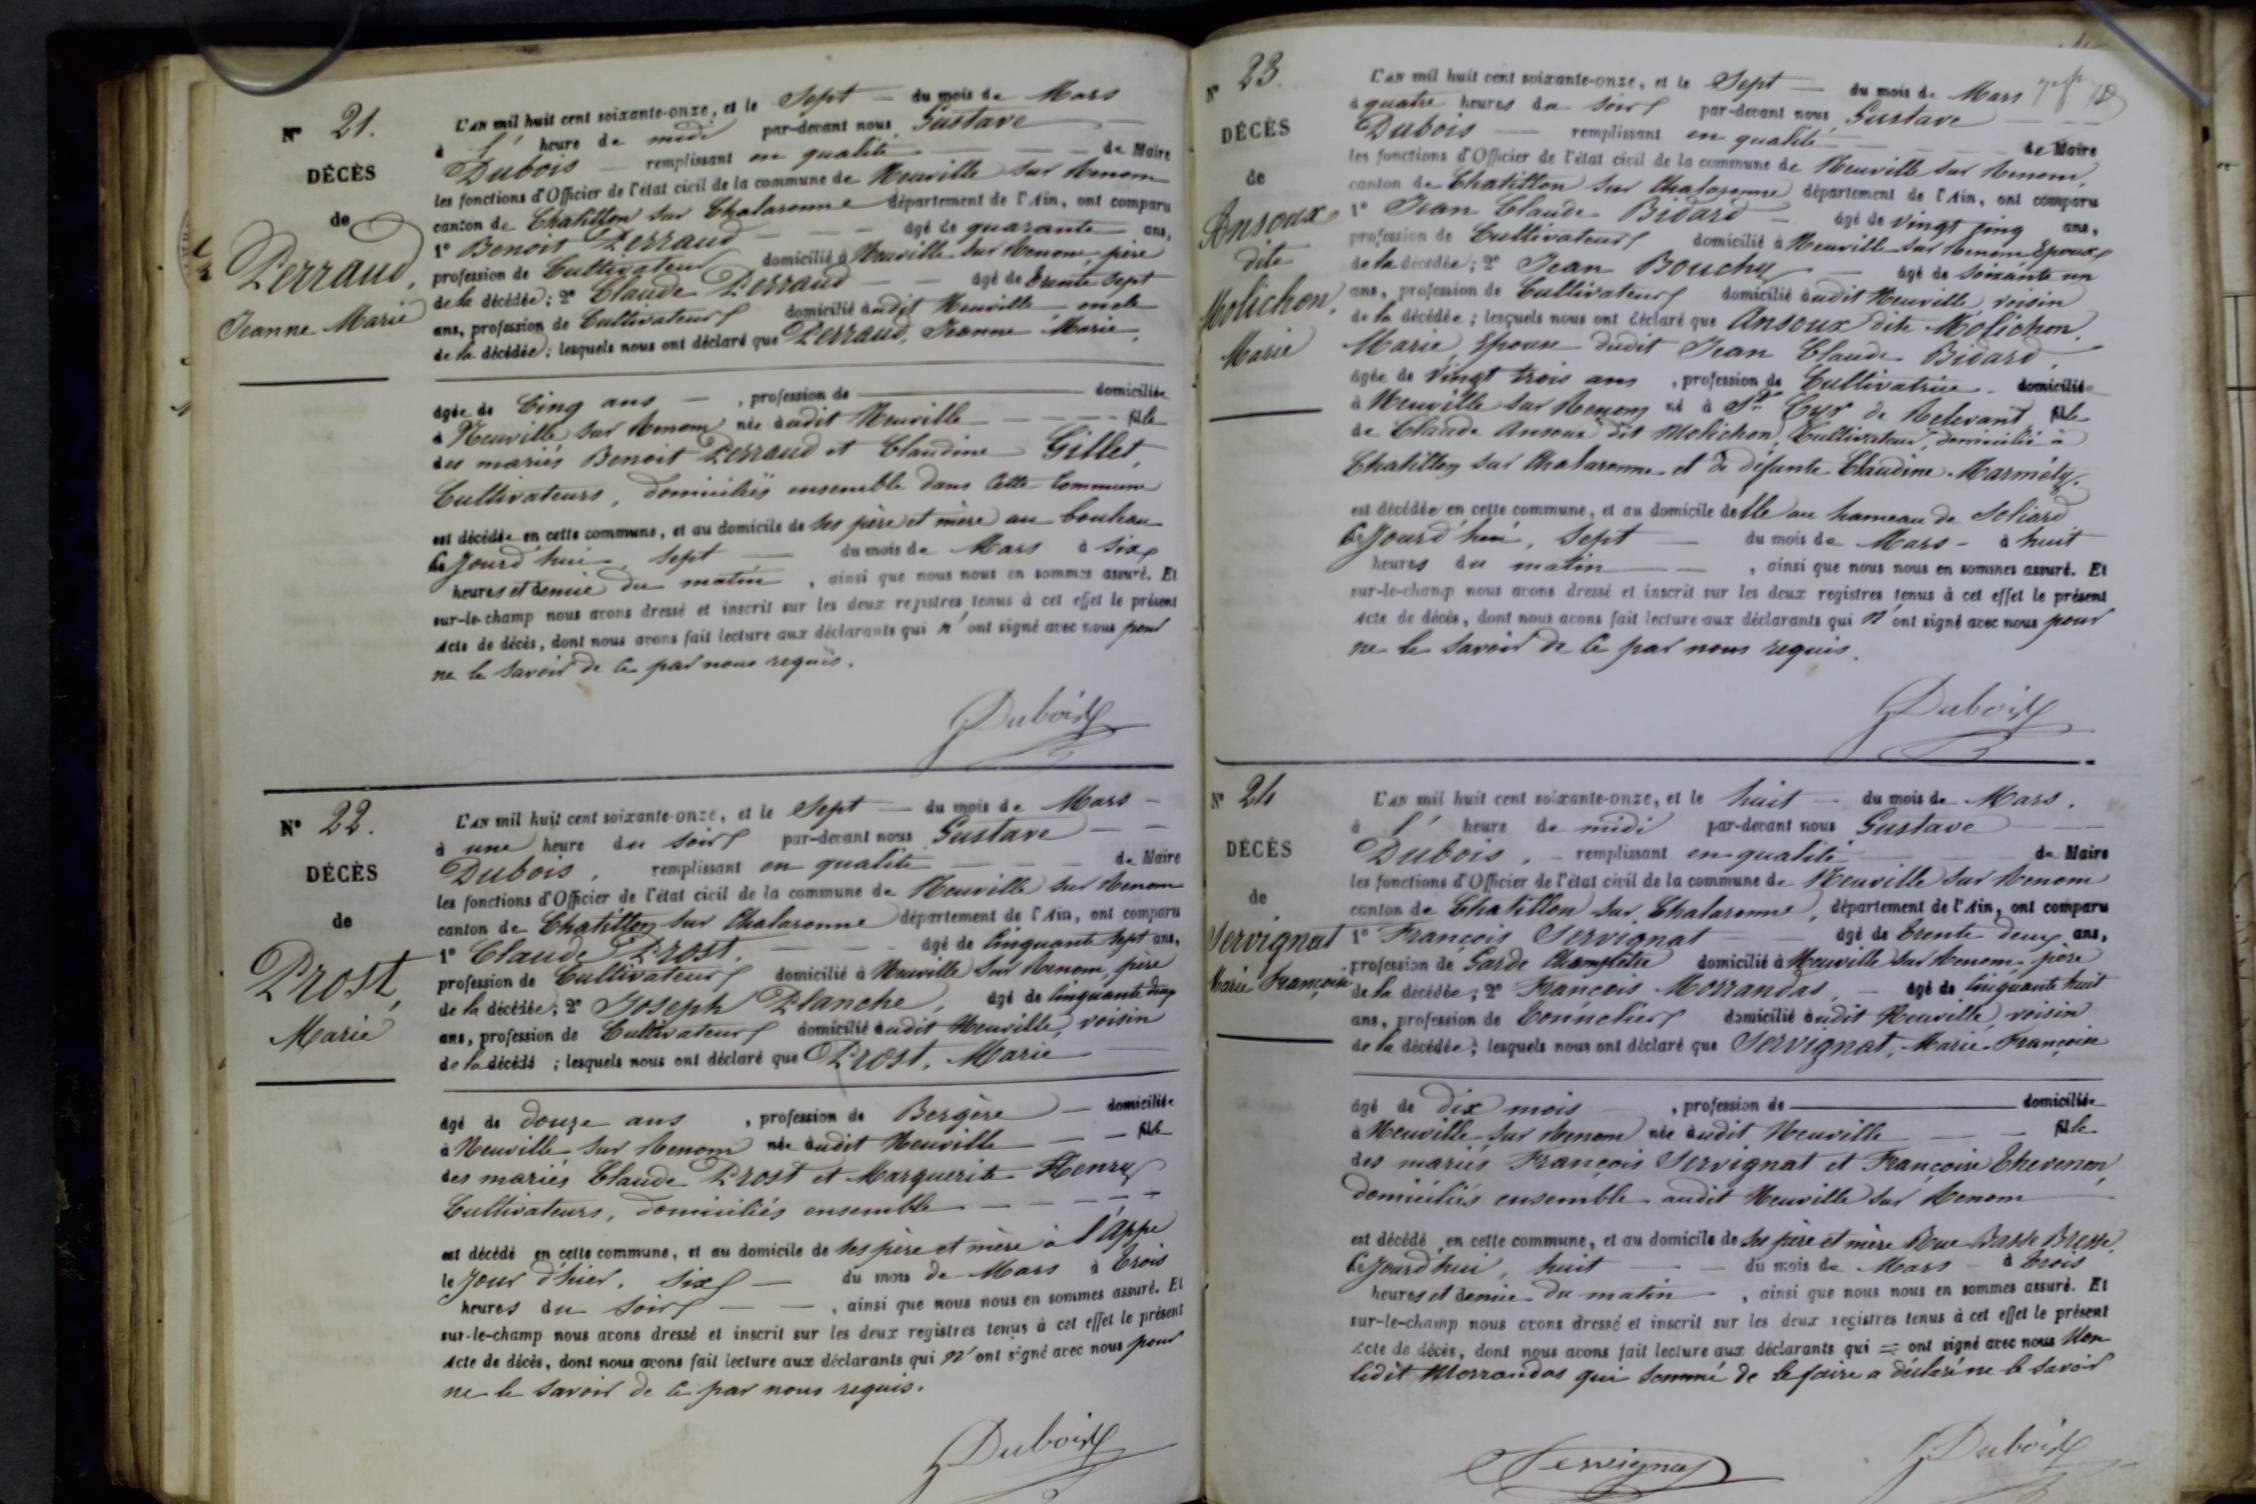 N° 21.
DÉCÈS
de
Perraud,
Jeanne Marie
L'AN mil huit cent soixante-onze, et le Sept du mois de Mars
à l' heure de midi par-devant nous Gustave
Dubois remplissant en qualité de Maire
les fonctions d'Officier de l'état civil de la commune de Neuville sur Renom
canton de Chatillon sur Chalaronne département de l'Ain, ont comparu
1° Benoit Perraud âgé de quarante ans,
profession de Cultivateur domicilié à Neuville sur Renom, père
de la décédée; 2° Claude Perraud âgé de trente sept
ans, profession de Cultivateur domicilié audit Neuville oncle
de la décédée; lesquels nous ont déclaré que Perraud, Jeanne Marie,
âgée de Cinq ans, profession de domiciliée
à Neuville sur Renom née audit Neuville fille
des mariés Benoit Perraud et Claudine Gillet,
Cultivateurs, domiciliés ensemble dans cette Commune
est décédée en cette commune, et au domicile de ses père et mère au bouleau
Ce Jourd'hui, sept du mois de Mars à six
heures et demie du matin, ainsi que nous nous en sommes assuré. Et
sur-le-champ nous avons dressé et inscrit sur les deux registres tenus à cet effet le présent
Acte de décès, dont nous avons fait lecture aux déclarants qui n'ont signé avec nous pour
ne le savoir de ce par nous requis.
Dubois
N° 22.
DÉCÈS
de
Prost,
Marie
L'AN mil huit cent soixante-onze, et le Sept du mois de Mars
à une heure du soir par-devant nous Gustave
Dubois, remplissant en qualité de Maire
les fonctions d'Officier de l'état civil de la commune de Neuville sur Renom
canton de Chatillon sur Chalaronne département de l'Ain, ont comparu
1° Claude Prost. âgé de Cinquante sept ans,
profession de Cultivateur domicilié à Neuville sur Renom, père
de la décédée; 2° Joseph Planche, âgé de Cinquante deux
ans, profession de Cultivateur domicilié audit Neuville, voisin
de la décédé; lesquels nous ont déclaré que Prost, Marie
âgé de douze ans, profession de Bergère domiciliée
à Neuville sur Renom née audit Neuville fille
des mariés Claude Prost et Marguerite Henry
Cultivateurs, domiciliés ensemble
est décédé en cette commune, et au domicile de ses père et mère à l'Appe
le Jour d'hier, six du mois de Mars à trois
heures du soir, ainsi que nous nous en sommes assuré. Et
sur-le-champ nous avons dressé et inscrit sur les deux registres tenus à cet effet le présent
Acte de décès, dont nous avons fait lecture aux déclarants qui n'ont signé avec nous pour
ne le savoir de ce par nous requis.
Dubois
N° 23.
DÉCÈS
de
Ansoux
dite
Molichon,
Marie
L'AN mil huit cent soixante-onze, et le Sept du mois de Mars
à quatre heures du soir par-devant nous Gustave
Dubois remplissant en qualité de Maire
les fonctions d'Officier de l'état civil de la commune de Neuville sur Renom,
canton de Chatillon sur Chalaronne département de l'Ain, ont comparu
1° Jean Claude Bidard âgé de vingt cinq ans,
profession de Cultivateur domicilié à Neuville sur Renom Epoux
de la décédée; 2° Jean Bouchy âgé de soixante un
ans, profession de Cultivateur domicilié audit Neuville, voisin
de la décédée; lesquels nous ont déclaré que Ansoux dite Molichon,
Marie, Epouse dudit Jean Claude Bidard,
âgée de Vingt trois ans, profession de Cultivatrice domicilié
à Neuville sur Renom né à St Cyr de Relevant fille
de Claude Ansoux dit Molichon, Cultivateur, domicilié à
Chatillon sur Chalaronne et de défunte Claudine Marmély.
est décédée en cette commune, et au domicile delle au hameau de Soliard
Ce Jourd'hui, sept du mois de Mars à huit
heures du matin, ainsi que nous nous en sommes assuré. Et
sur-le-champ nous avons dressé et inscrit sur les deux registres tenus à cet effet le présent
Acte de décès, dont nous avons fait lecture aux déclarants qui n'ont signé avec nous pour
ne le savoir de ce par nous requis.
Dubois
N° 24
DÉCÈS
de
Servignat
Marie Françoise
L'AN mil huit cent soixante-onze, et le huit du mois de Mars.
à l' heure de midi par-devant nous Gustave
Dubois, remplissant en qualité de Maire
les fonctions d'Officier de l'état civil de la commune de Neuville sur Renom
canton de Chatillon sur Chalaronne, département de l'Ain, ont comparu
1° François Servignat âgé de trente deux ans,
profession de Garde Champêtre domicilié à Neuville sur Renom père
de la décédée; 2° François Morrandas, âgé de Cinquante huit
ans, profession de Tonnelier domicilié audit Neuville, voisin
de la décédée; lesquels nous ont déclaré que Servignat, Marie Françoise
âgé de dix mois, profession de domiciliée
à Neuville sur Renom née audit Neuville fille
des mariés François Servignat et Françoise Thevenon,
domiciliés ensemble audit Neuville sur Renom
est décédé en cette commune, et au domicile de ses père et mère Rue Basse Bresse,
Ce Jourd'hui, huit du mois de Mars à trois
heures et demie du matin, ainsi que nous nous en sommes assuré. Et
sur-le-champ nous avons dressé et inscrit sur les deux registres tenus à cet effet le présent
Acte de décès, dont nous avons fait lecture aux déclarants qui ont signé avec nous Non
ledit Morrandas qui sommé de le faire a déclaré ne le savoir
Servignat Dubois